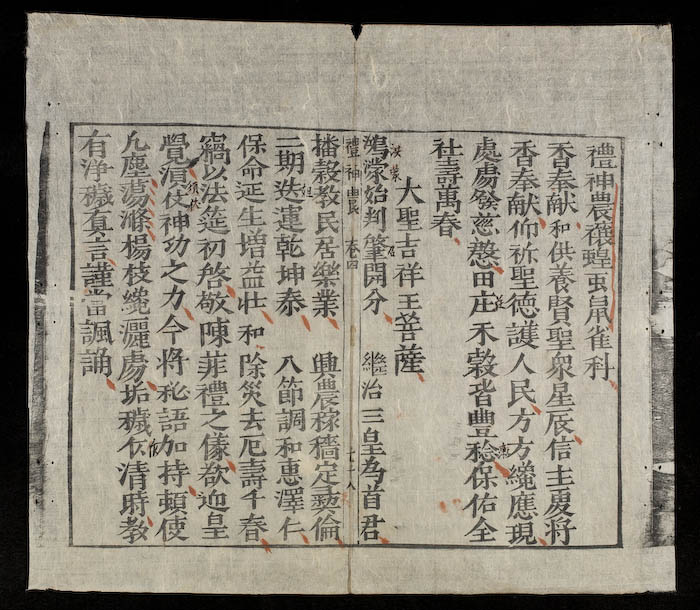 禮神農禳蝗虫鼠雀科
香奉献和供養賢聖衆星辰信主虔將
香奉献仰祈聖德護人民方方纔應現
處處發慈愍田庄禾穀皆豊稔保佑全
社壽萬春
大聖吉祥王菩薩
鴻濛始判肇開分 繼治三皇為首君
禮神農 卷四 七十八
播穀教民居樂業 興農稼穡定彛倫
二期迭運乾坤泰 八節調和惠澤仁
保命延生增益壮和除災去厄壽千春
窩以法筵初啓敬陳菲禮之儀欲迎皇
覺湏仗神功之力今將秘語加持頓使
凢塵蕩滌楊枝纔灑處垢穢伏清時教
有浄穢真言謹當諷誦